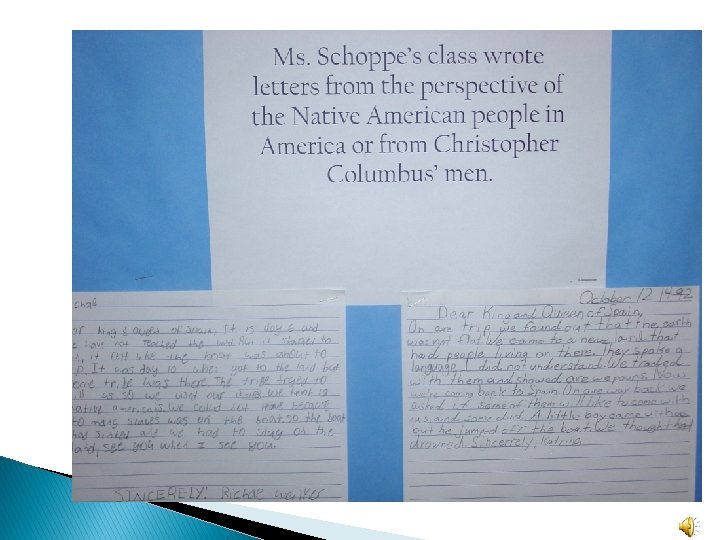 Ms. Schoppe's class wrote
letters from the perspective of
the Native American people in
America or from Christopher
Columbus' men.
king & queen of It is day 6 and
have not reached the land But it started to
it felt like the boat was about to
It was day 10 when got to the land but
some tribe was there The tribe tryed to
us so we went our
native americans we called not home because
to many slaves was on the boat, so the boat
had and we had to stay on the
land, see you when I see you.
SINCERELY! Richae
October 12 1492
Dear King and Queen of Spain,
On are trip we found out that the earth
was not flat We came to a new and that
had people living on there. They spoke a
language I did not understand. We traded
with them and showed are weapons. Now
we're coming back to Spain. On are way back we
asked if some of them will like to come with
us, and some did. A little boy came with us
but he jumped off the boat. We thought he
drowned. Sincerely,